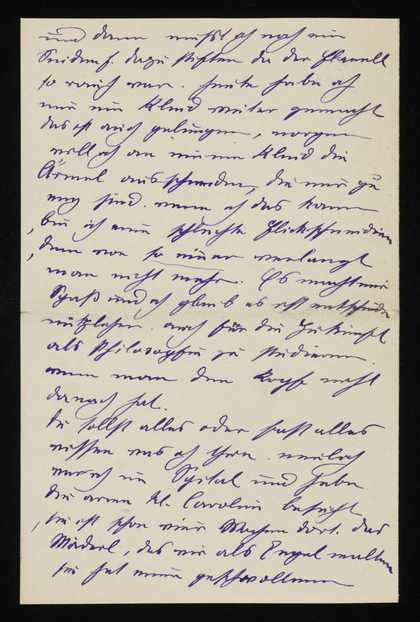 und dann muſst ich noch ein
Seidenf. dazu stiften da der Flanell
so rauh war. heute habe ich
mir ein Kleid weiter gemacht
das ist auch gelungen, morgen
will ich an einem Kleid die
Ärmel ausschneiden, die mir zu
eng sind. wenn ich das kann
bin ich eine schlechte Flickschneiderin
denn von so einer verlangt
man nicht mehr. Es macht mir
Spaß und ich glaub es ist entschieden
nützlicher auch für die Zukunft
als Philosophie zu studieren.
wenn man den Kopf nicht
danach hat.
Du sollst alles oder fast alles
wissen was ich thue. neulich
war ich im Spital und habe
die arme kl. Carolin besucht
sie ist schon vier Wochen dort. das
Mäderl, das wir als Engel malten
sie hat eine geschwollene